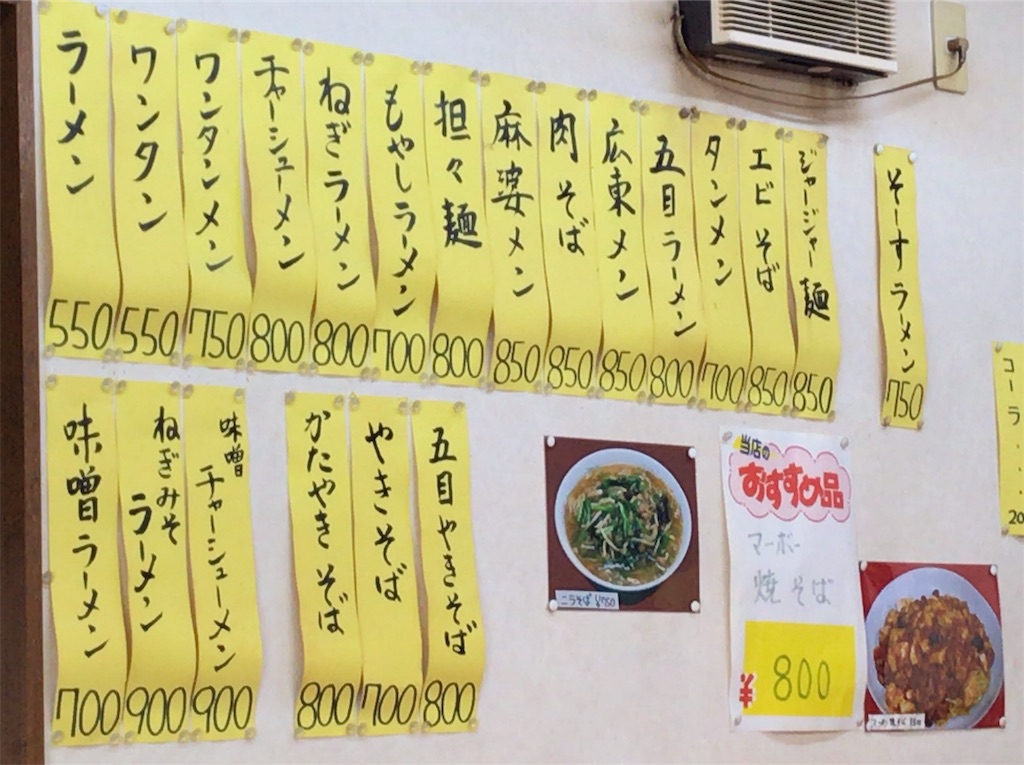 ラーメン 550
ワンタン 550
ワンタンメン 750
チャーシューメン 800
ねぎラーメン 800
もやしラーメン 700
担々麺 800
麻婆メン 850
肉そば 850
広東メン 850
五目ラーメン 800
タンメン 700
エビそば 850
ジャージャー麺 850
そーすラーメン 750
コーラ・・・20
味噌ラーメン 700
ねぎみそ
ラーメン 900
味噌
チャーシューメン 900
かたやきそば 800
やきそば 700
五目やきそば 800
ニラそば ¥750
当店の
おすすめ品
マーボー
焼そば
¥800